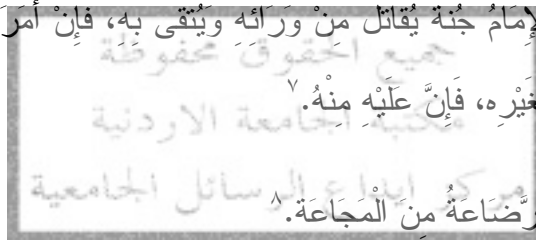 لإِمَامُ جُنة يُقَاتل مِنْ وَرَائِهِ وَيُتقى بِهِ، فَإِنْ أَمَرَ
جميع الحقوق محفوظة
غَيْرِه، فَإِنَّ عَلَيْهِ مِنْهُ.٧
مكتبة الجامعة الاردنية
مركز ايداع الرسائل الجامعية
رَّضَاعَةُ مِنَ الْمَجَاعَة.٨